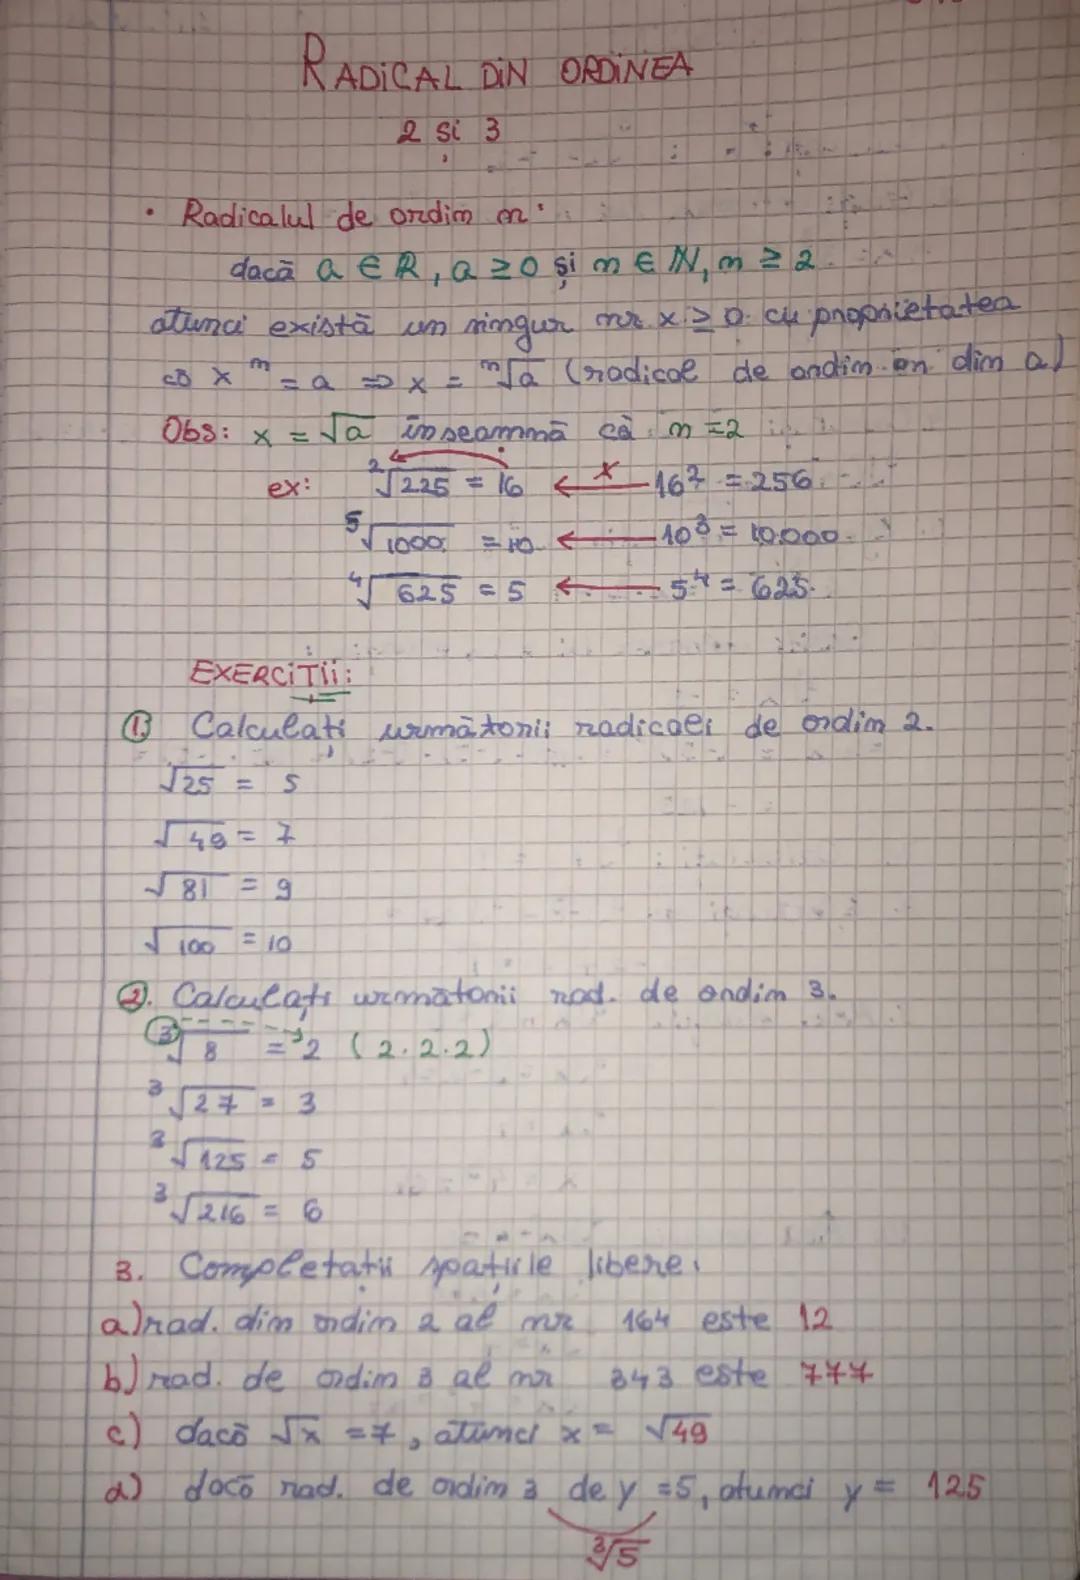 RADICAL DIN ORDINEA
2 și 3
• Radicalul de ordin n:
dacă a ∈ R, a ≥ 0 și n ∈ N, n ≥ 2
atunci există un singur nr x ≥ 0 cu proprietatea
că x^n = a ⇒ x = ⁿ√a (radical de ordin n din a)
Obs: x = √a înseamnă că n = 2
ex: ²√225 = 16 ← x 16² = 256
⁵√1000 = 10 ← 10³ = 10.000
⁴√625 = 5 ← 5⁴ = 625
EXERCIȚII:
1. Calculați următorii radicali de ordin 2.
√25 = 5
√49 = 7
√81 = 9
√100 = 10
2. Calculați următorii rad. de ordin 3.
³√8 = 2 (2·2·2)
³√27 = 3
³√125 = 5
³√216 = 6
3. Completatii spațiile libere.
a) rad. din ordin 2 al nr 164 este 12
b) rad. de ordin 3 al nr 343 este 777
c) dacă √x = 7, atunci x = √49
d) dacă rad. de ordin 3 de y = 5, atunci y = 125
³√5